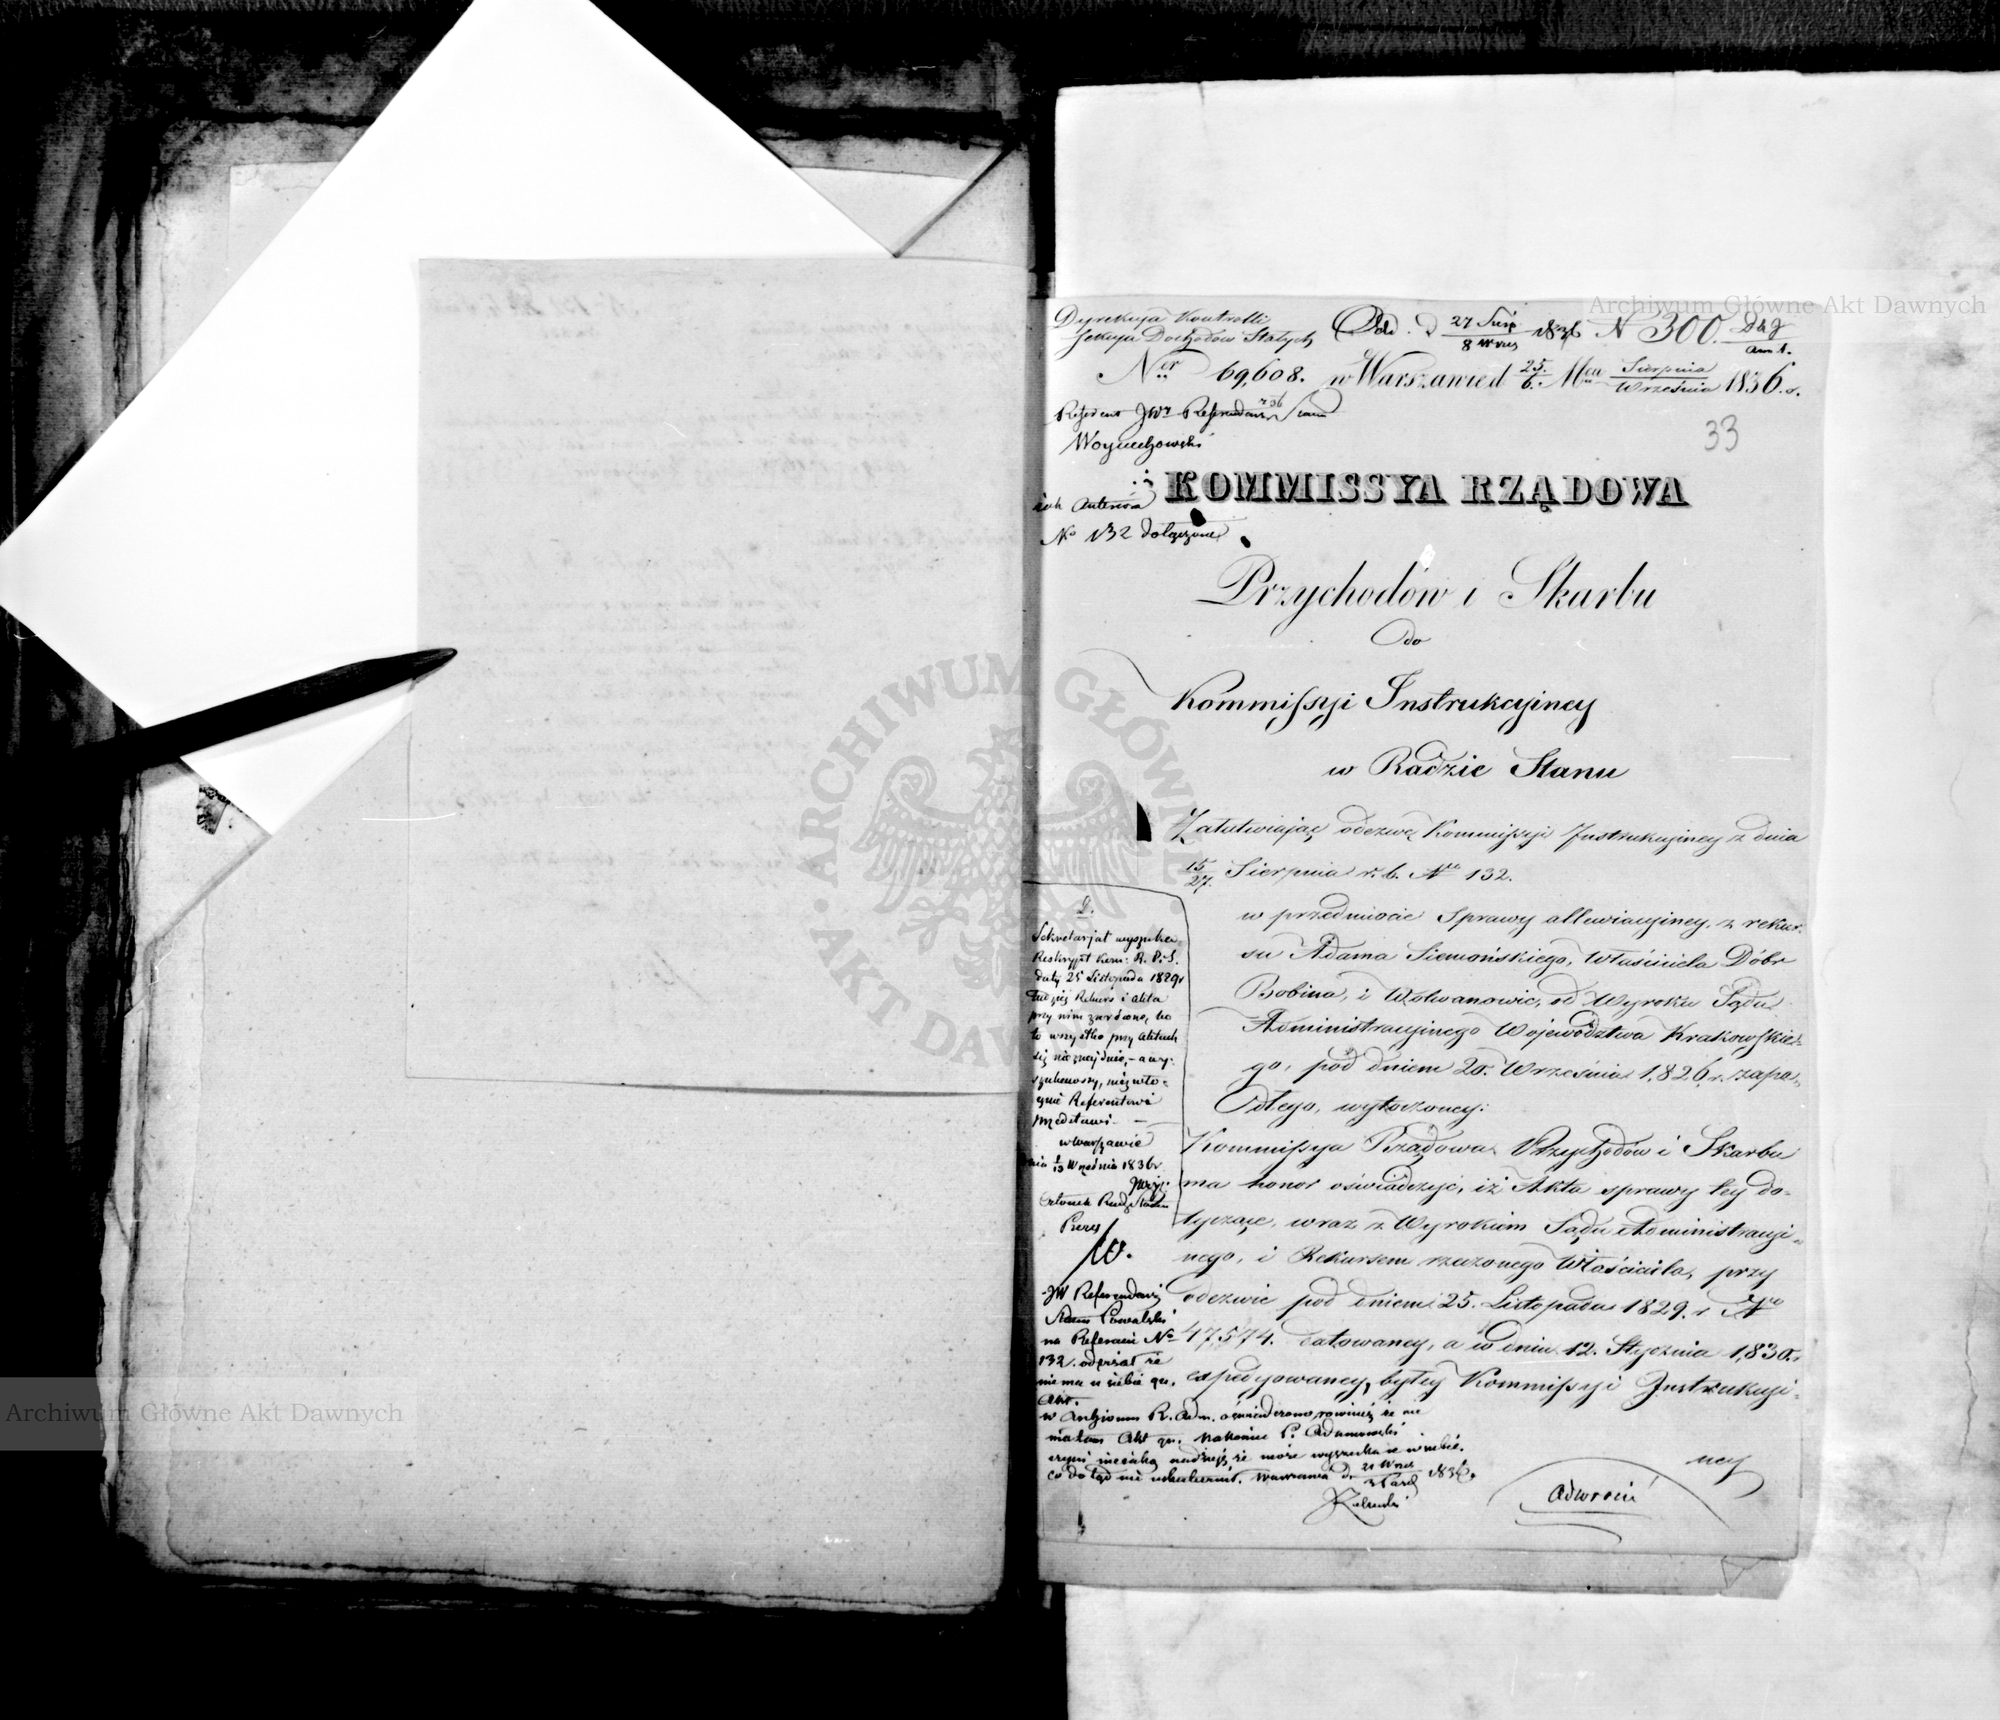 Dyrekcya Kontrolli
Sekcya Dochodów Stałych
Odd. d. 27 Sierp / 8 Wrześ 1836 N 300.
Ner 69,608. w Warszawie d 25./6. Mca Sierpnia / Września 1836. r.
Referent JWy Referendarz Stanu
Woyciechowski
33
KOMMISSYA RZĄDOWA
No 132 dołączone
Przychodów i Skarbu
do
Kommissyi Instrukcyiney
w Radzie Stanu
Załatwiaiąc odezwę Kommissyi Instrukcyiney z dnia
15/27. Sierpnia r. b. Nro 132.
w przedmiocie Sprawy allewiacyiney, z rekur-
su Adama Siemońskiego, Właściciela Dóbr
Bobina, i Wolwanowic, od Wyroku Sądu
Administracyinego Województwa Krakowskie-
go, pod dniem 20. Września 1,826. r. zapa-
dłego, wytoczoney:
Kommissya Rządowa Przychodów i Skarbu
ma honor oświadczyć, iż Akta sprawy tey do-
tyczące, wraz z Wyrokiem Sądu Administracyi-
nego, i Rekursem rzeczonego Właściciela, przy
odezwie pod dniem 25. Listopada 1829. r. Nro
47,574. datowaney, a w dniu 12. Stycznia 1,830. r.
expedyowaney, byłey Kommissyi Instrukcyi-
ney
D.
Sekretarjat wyszuka
Reskrypt Kom: R. P. i S.
daty 25 Listopada 1829 r
tudzież Rekurs i akta
przy nim zwrócone, bo
to wszystko przy aktach
się nie znajduie, – a wy-
szukawszy, niezwło-
cznie Referentowi
przedstawi. –
w Warszawie
dnia 1/13 Września 1836 r.
Członek Rady Stanu
Prezy
JW Referendarz
Stanu
na Referacie No
132. odpisał że
nie ma u siebie qu.
Akt.
w Archiwum R. Adm. oświadczono również że nie
mają Akt qu. Nakoniec P. Adamowski
czyni niejaką nadzieję, że może wyszuka je u siebie.
co dotąd nie uskutecznił. Warszawa d. 21 Wrześ / 3 Paźd 1836.
Adwrócić
Archiwum Główne Akt Dawnych
Archiwum Główne Akt Dawnych
ARCHIWUM GŁÓWNE AKT DAWNYCH